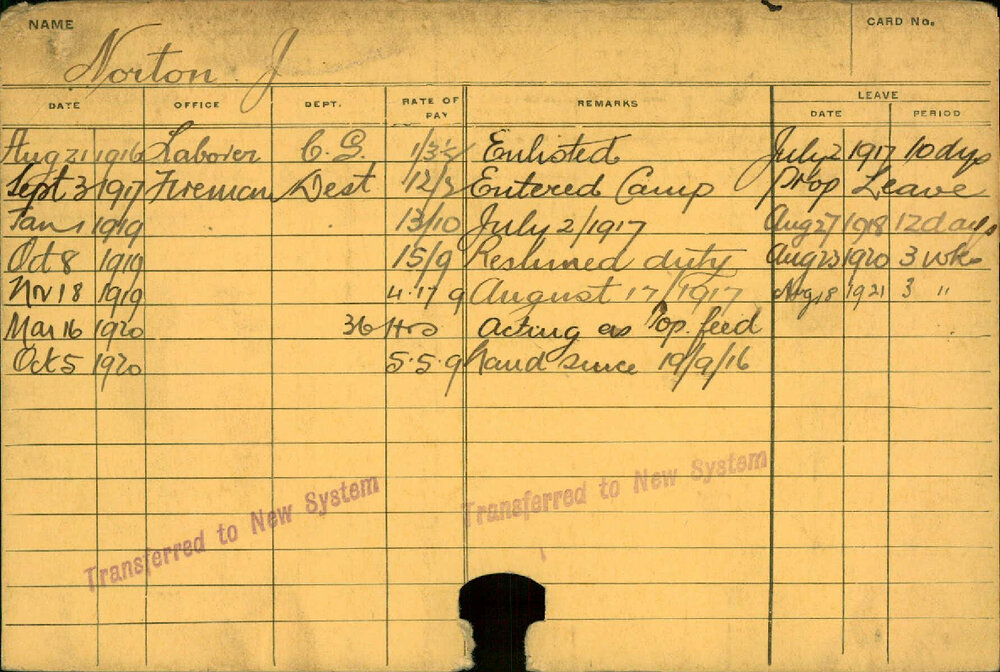 NAME CARD No.
Norton J
DATE OFFICE DEPT. RATE OF PAY REMARKS LEAVE
DATE PERIOD
Aug 21 1916 Laborer C.G. 1/3½ Enlisted July 2 1917 10 dys
Sept 3 1917 Fireman Dest 12/3 Entered Camp Prop Leave
Jan 1 1919 13/10 July 2/1917 Aug 27 1918 12 days
Oct 8 1919 15/9 Resumed duty Aug 23 1920 3 wks
Nov 18 1919 4.17.9 August 17/1917 Aug 8 1921 3 "
Mar 16 1920 36 Hrs acting as Top. feed
Oct 5 1920 5.5.9 hand since 19/9/16
Transferred to New System
Transferred to New System